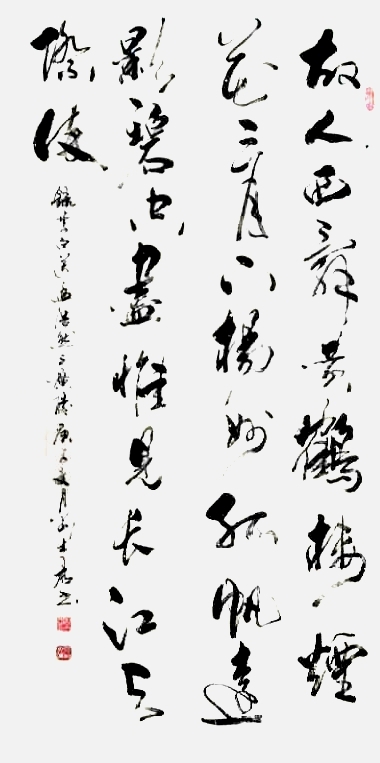 故人西辭黃鶴樓煙
花三月下楊州孤帆遠
影碧空盡惟見長江天
際流
錄李白送孟浩然之廣陵庚子夏月